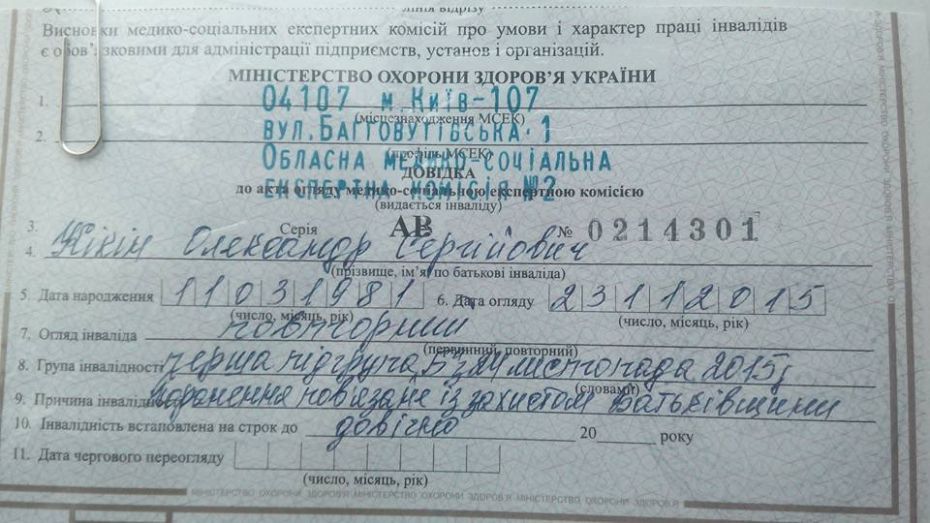 лінія відрізу
Висновки медико-соціальних експертних комісій про умови і характер праці інвалідів
є обов'язковими для адміністрації підприємств, установ і організацій.
МІНІСТЕРСТВО ОХОРОНИ ЗДОРОВ'Я УКРАЇНИ
1. 04107 м.Київ-107
(місцезнаходження МСЕК)
2. вул.Багговутівська·1
(профіль МСЕК)
Обласна медико-соціальна
ДОВІДКА
експертна комісія №2
до акта огляду медико-соціальною експертною комісією
(видається інваліду)
3. Серія АВ № 0214301
4. Кікін Олександр Сергійович
(прізвище, ім'я, по батькові інваліда)
5. Дата народження 11031981 6. Дата огляду 23112015
(число, місяць, рік) (число, місяць, рік)
7. Огляд інваліда повторний
(первинний, повторний)
8. Група інвалідності перша підгрупа Б з 24 листопада 2015р
(словами)
9. Причина інвалідності поранення пов'язане із захистом Батьківщини
10. Інвалідність встановлена на строк до довічно 20 року
11. Дата чергового переогляду
(число, місяць, рік)
МІНІСТЕРСТВО ОХОРОНИ ЗДОРОВ'Я МІНІСТЕРСТВО ОХОРОНИ ЗДОРОВ'Я МІНІСТЕРСТВО ОХОРОНИ ЗДОРОВ'Я